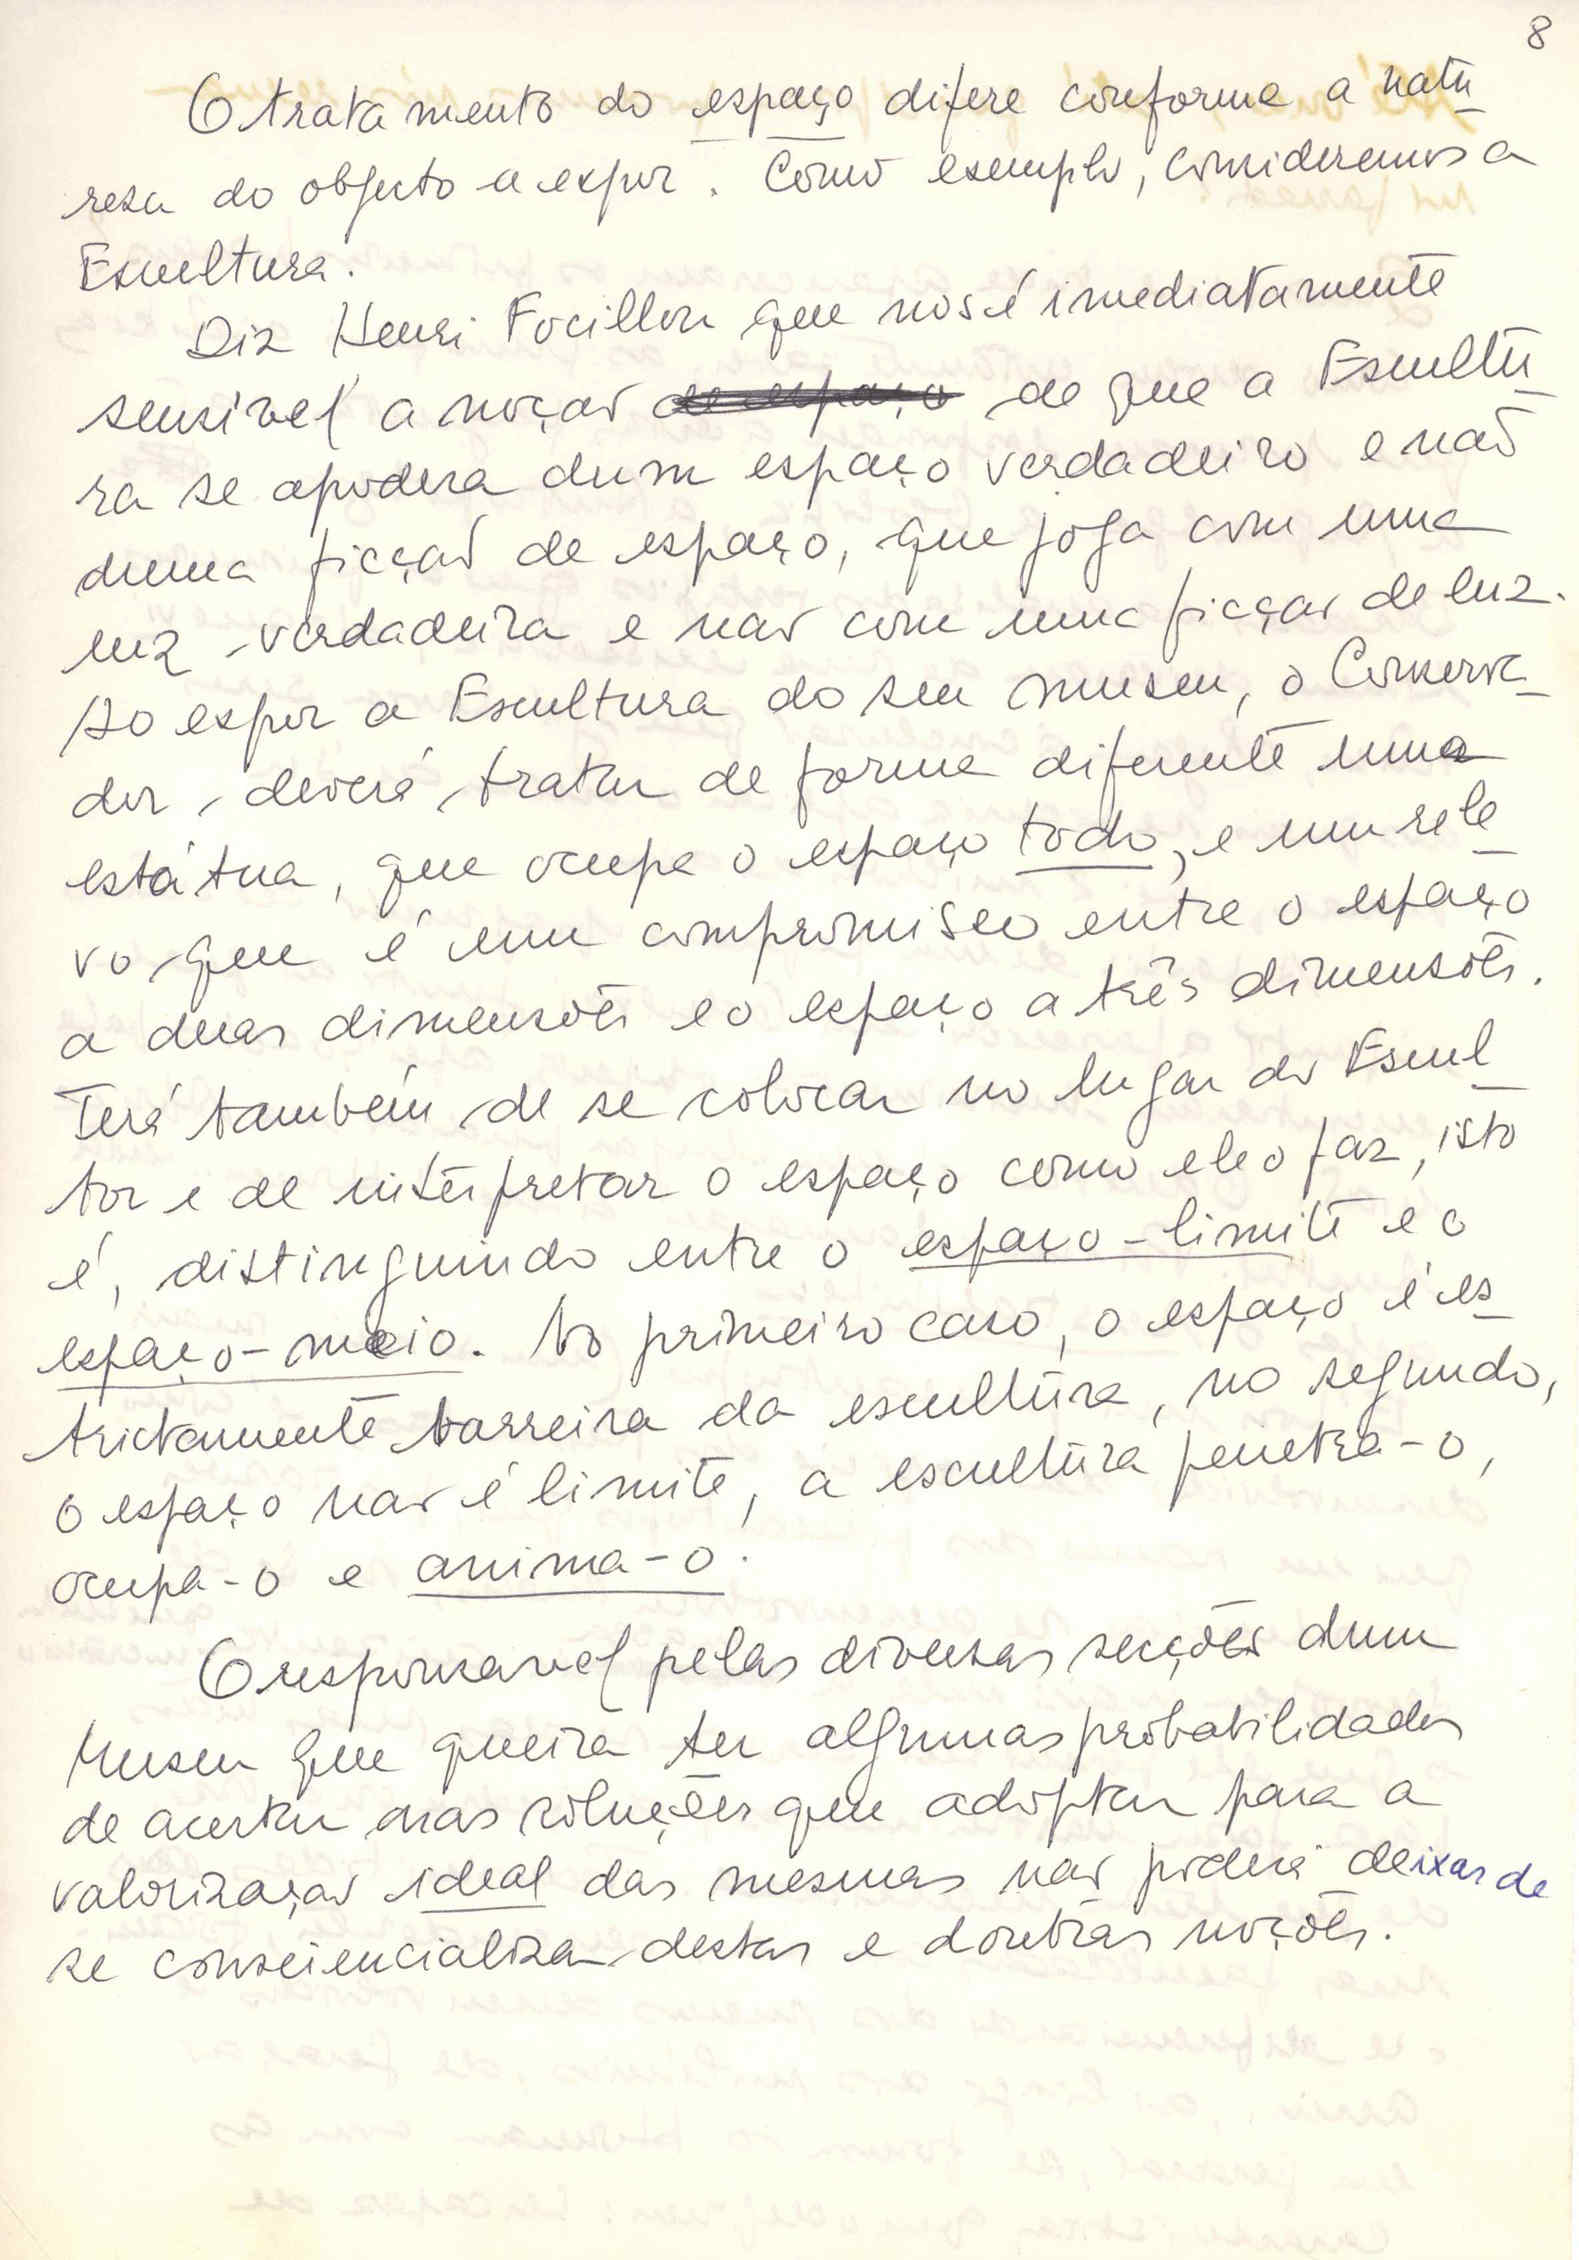 8
O tratamento do espaço difere conforme a natu
resa do objecto a expor. Como exemplo, consideremos a
Escultura.
Diz Henri Focillon que nos é imediatamente
sensível a noção de espaço de que a Escultu
ra se apodera dum espaço verdadeiro e não
duma ficção de espaço, que joga com uma
luz verdadeira e não com uma ficção de luz.
Ao expor a Escultura do seu museu, o Conserva
dor, deverá tratar de forma diferente uma
estátua, que ocupa o espaço todo, e um rele
vo que é um compromisso entre o espaço
a duas dimensões e o espaço a três dimensões.
Terá também de se colocar no lugar do Escul
tor e de interpretar o espaço como ele o faz, isto
é, distinguindo entre o espaço-limite e o
espaço-meio. No primeiro caso, o espaço é es
trictamente barreira da escultura, no segundo,
o espaço não é limite, a escultura penetra-o,
ocupa-o e anima-o.
O responsavel pelas diversas secções dum
Museu que queira ter algumas probabilidades
de acertar nas soluções que adoptar para a
valorização ideal das mesmas não poderá deixar de
se consciencializar destas e doutras noções.